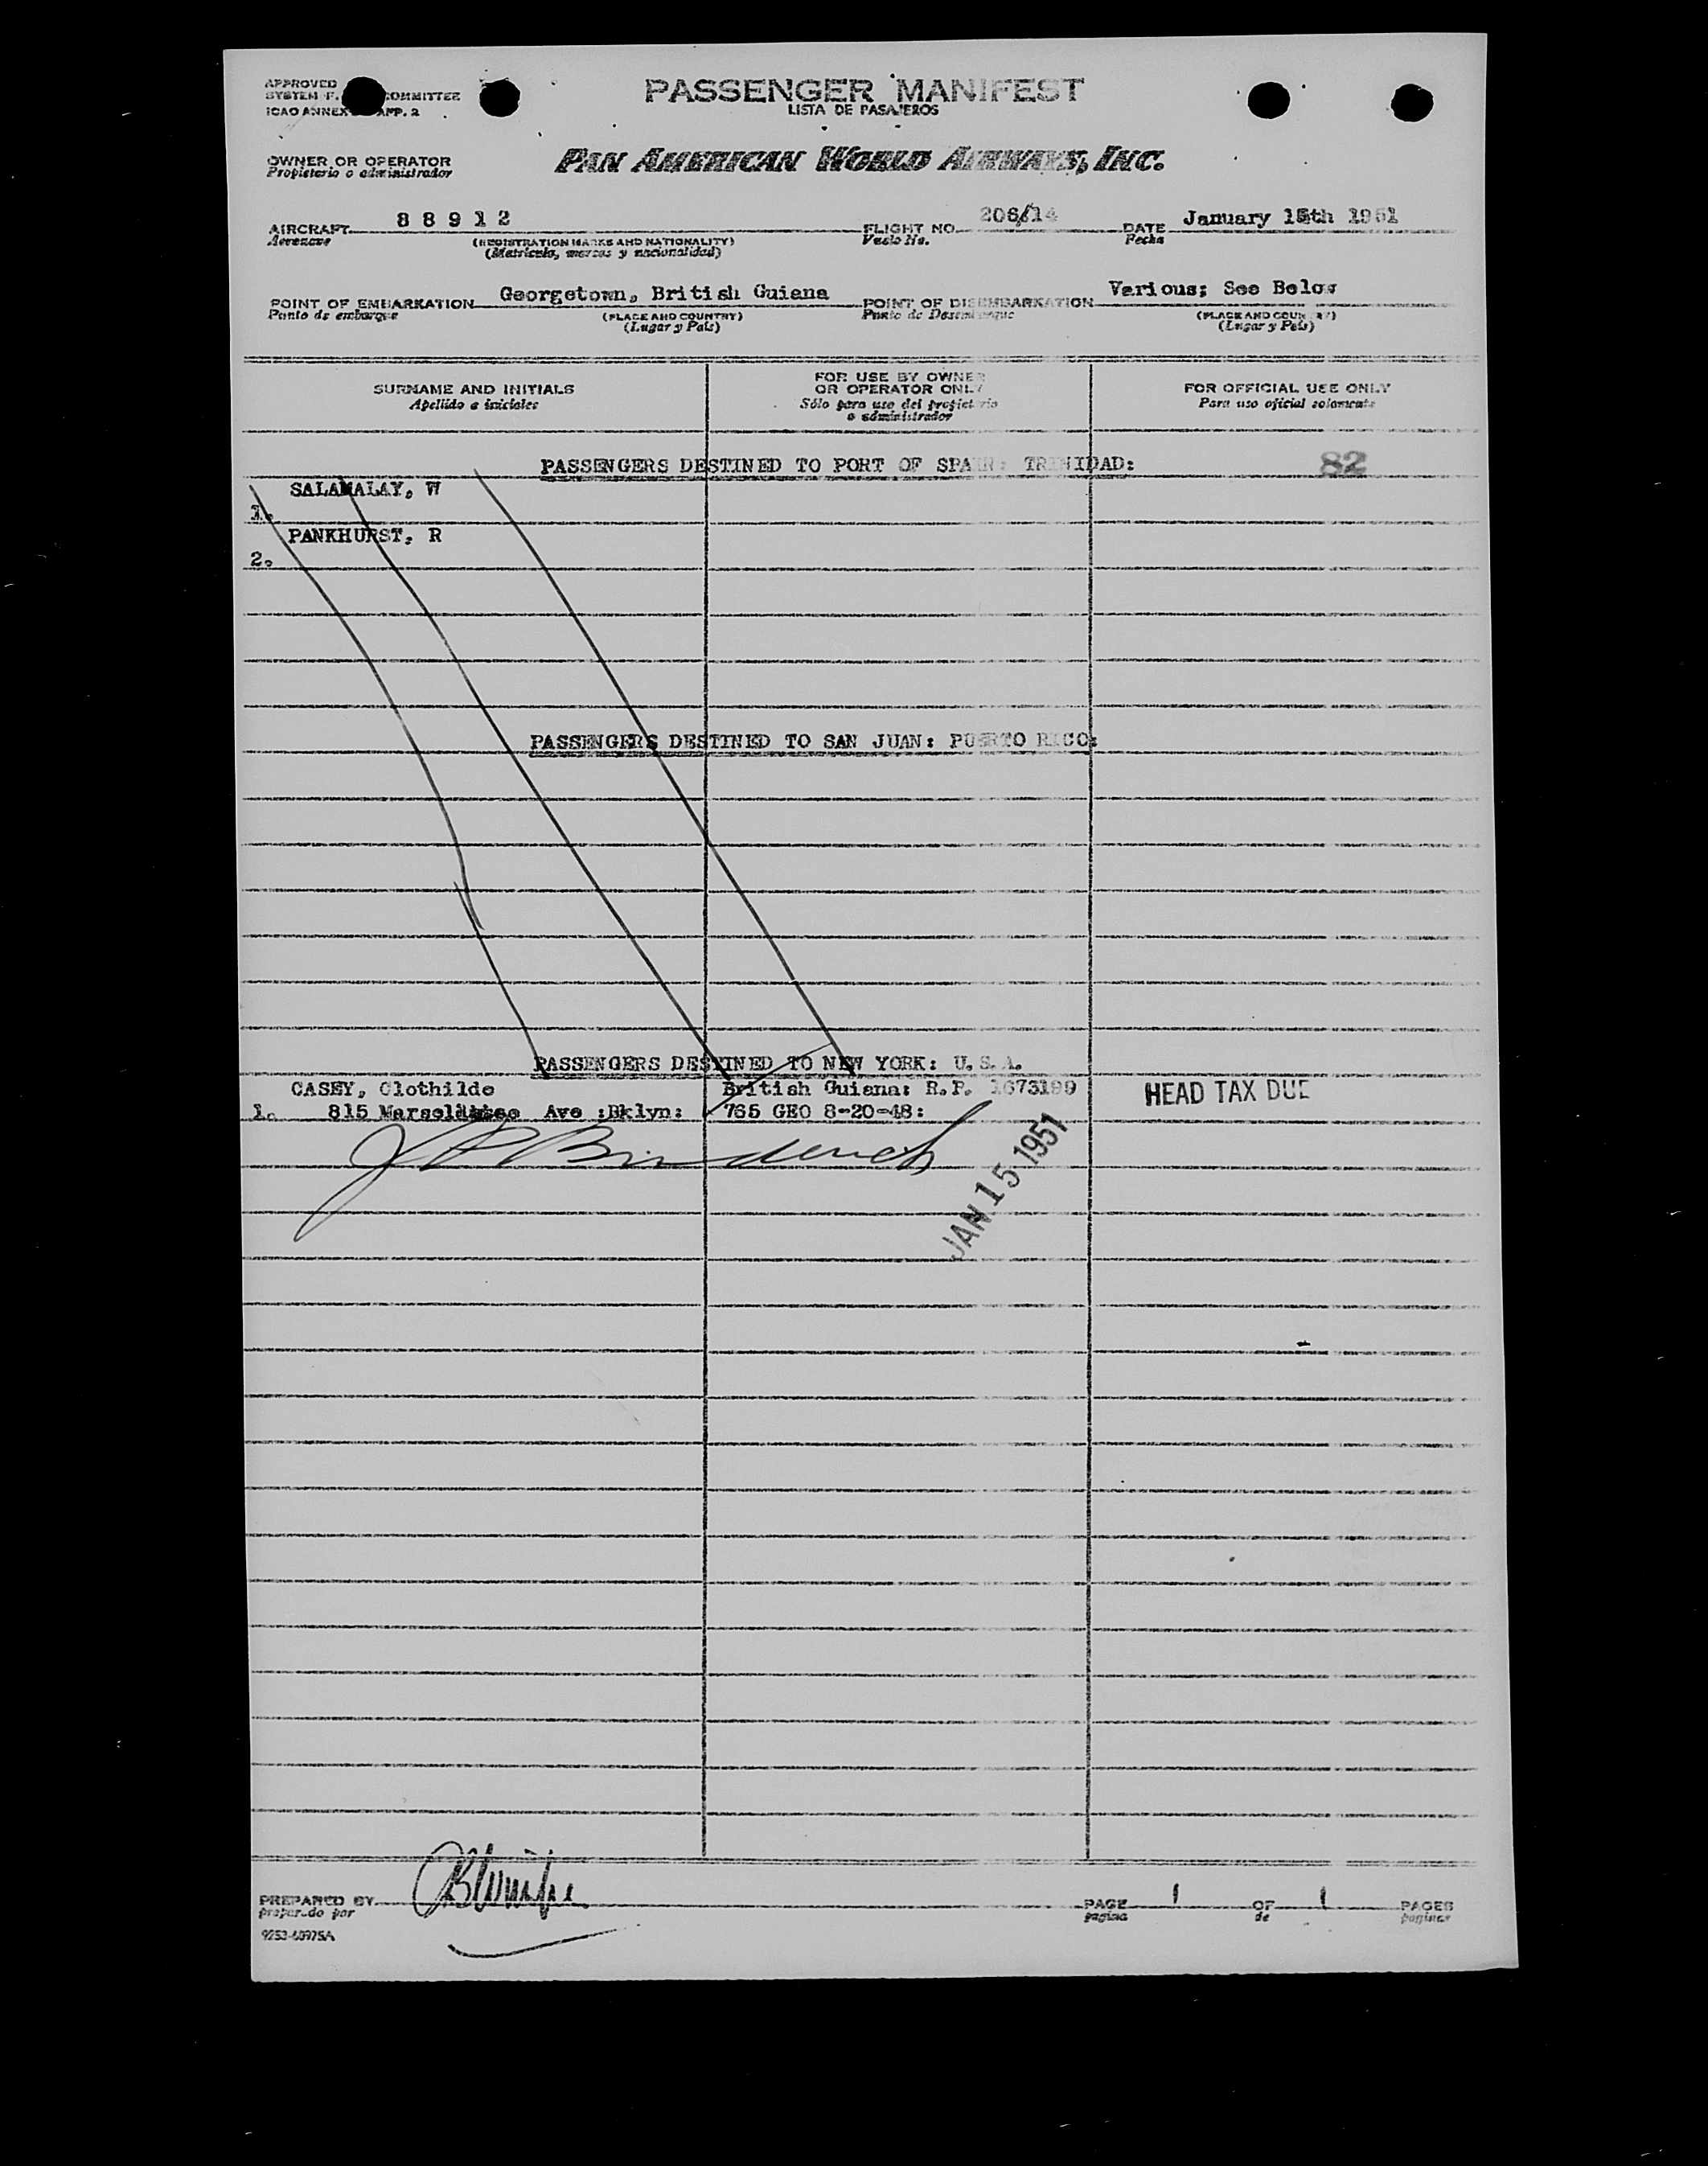 APPROVED
SYSTEM F. COMMITTEE
ICAO ANNEX APP. 2
PASSENGER MANIFEST
LISTA DE PASAJEROS
OWNER OR OPERATOR
Propietario o administrador
PAN AMERICAN WORLD AIRWAYS, INC.
AIRCRAFT 88912
Aeronave
(REGISTRATION MARKS AND NATIONALITY)
(Matricula, marcas y nacionalidad)
FLIGHT NO. 206/14
Vuelo No.
DATE January 15th 1951
Fecha
POINT OF EMBARKATION Georgetown, British Guiana
Punto de embarque
(PLACE AND COUNTRY)
(Lugar y País)
POINT OF DISEMBARKATION Various; See Below
Punto de Desembarque
(PLACE AND COUNTRY)
(Lugar y País)
SURNAME AND INITIALS
Apellido e iniciales
FOR USE BY OWNER
OR OPERATOR ONLY
Sólo para uso del propietario
o administrador
FOR OFFICIAL USE ONLY
Para uso oficial solamente
PASSENGERS DESTINED TO PORT OF SPAIN: TRINIDAD: 82
SALAMALAY, W
1.
PANKHURST, R
2.
PASSENGERS DESTINED TO SAN JUAN: PUERTO RICO:
PASSENGERS DESTINED TO NEW YORK: U.S.A.
CASEY, Clothilde British Guiana: R.P. 1673199 HEAD TAX DUE
1. 815 Ave :Bklyn: 765 GEO 8-20-48:
JAN 15 1951
PREPARED BY
preparado por
PAGE 1 OF 1 PAGES
pagina de paginas
9253-40975A